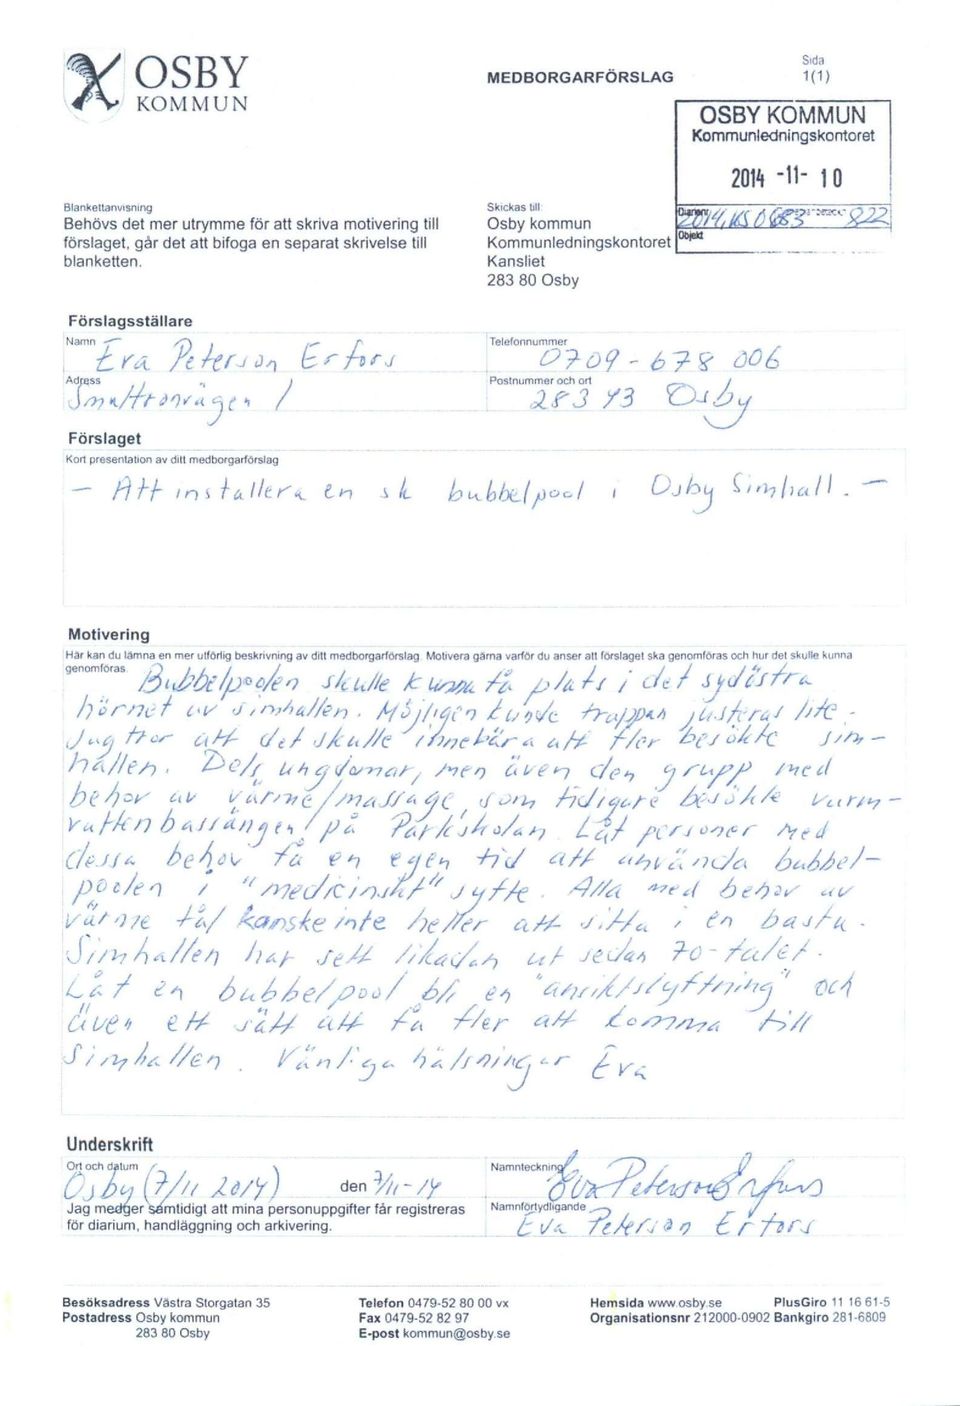 OSBY
KOMMUN
MEDBORGARFÖRSLAG
Sida
1(1)
OSBY KOMMUN
Kommunledningskontoret
2014 -11- 10
Diarienr
2014/KS0683 822
Objekt
Blankettanvisning
Behövs det mer utrymme för att skriva motivering till
förslaget, går det att bifoga en separat skrivelse till
blanketten.
Skickas till:
Osby kommun
Kommunledningskontoret
Kansliet
283 80 Osby
Förslagsställare
Namn
Eva Peterson Erfors
Telefonnummer
0709-678 006
Adress
Smultronvägen 1
Postnummer och ort
283 43 Osby
Förslaget
Kort presentation av ditt medborgarförslag
- Att installera en sk bubbelpool i Osby Simhall. -
Motivering
Här kan du lämna en mer utförlig beskrivning av ditt medborgarförslag. Motivera gärna varför du anser att förslaget ska genomföras och hur det skulle kunna
genomföras.
Bubbelpoolen skulle kunna få plats i det sydöstra
hörnet av simhallen. Möjligen kunde trappan justeras lite.
Jag tror att det skulle innebära att fler besökte sim-
hallen. Dels ungdomar, men även den grupp med
behov av värme/massage, som tidigare besökte varm-
vattenbassängen på Parkskolan. Låt personer med
dessa behov få en egen tid att använda bubbel-
poolen i "medicinskt" syfte. Alla med behov av
värme tål kanske inte heller att sitta i en bastu.
Simhallen har sett likadan ut sedan 70-talet.
Låt en bubbelpool bli en "ansiktslyftning" och
även ett sätt att få fler att komma till
Simhallen. Vänliga hälsningar Eva
Underskrift
Ort och datum
Osby (7/11 2014) den 7/11-14
Namnteckning
Eva Peterson Erfors
Jag medger samtidigt att mina personuppgifter får registreras
för diarium, handläggning och arkivering.
Namnförtydligande
Eva Peterson Erfors
Besöksadress Västra Storgatan 35
Postadress Osby kommun
283 80 Osby
Telefon 0479-52 80 00 vx
Fax 0479-52 82 97
E-post kommun@osby.se
Hemsida www.osby.se PlusGiro 11 16 61-5
Organisationsnr 212000-0902 Bankgiro 281-6809